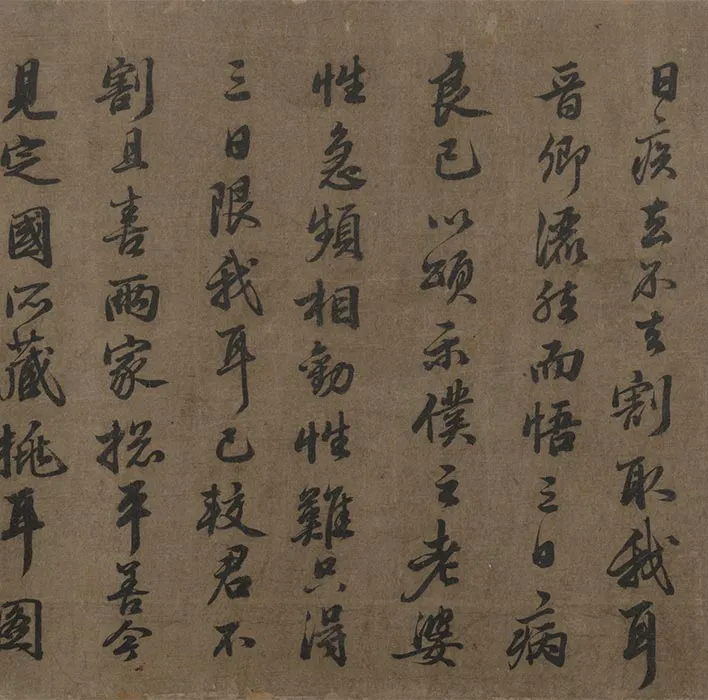 日疾去不去割取我耳
晉卿灑然而悟三日病
良已以頌示僕云老婆
性急頻相勸性難只得
三日限我耳已較君不
割且喜兩家揔平善今
見定國所藏挑耳圖